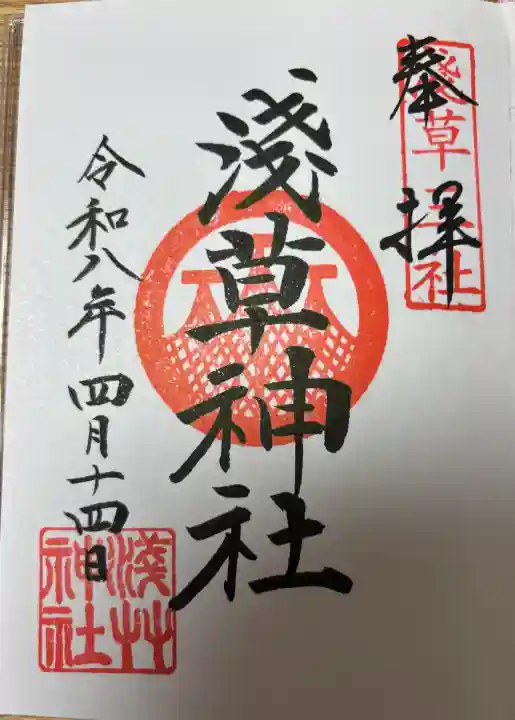 奉拝
淺草三社
淺草神社
令和八年四月十四日
淺草神社